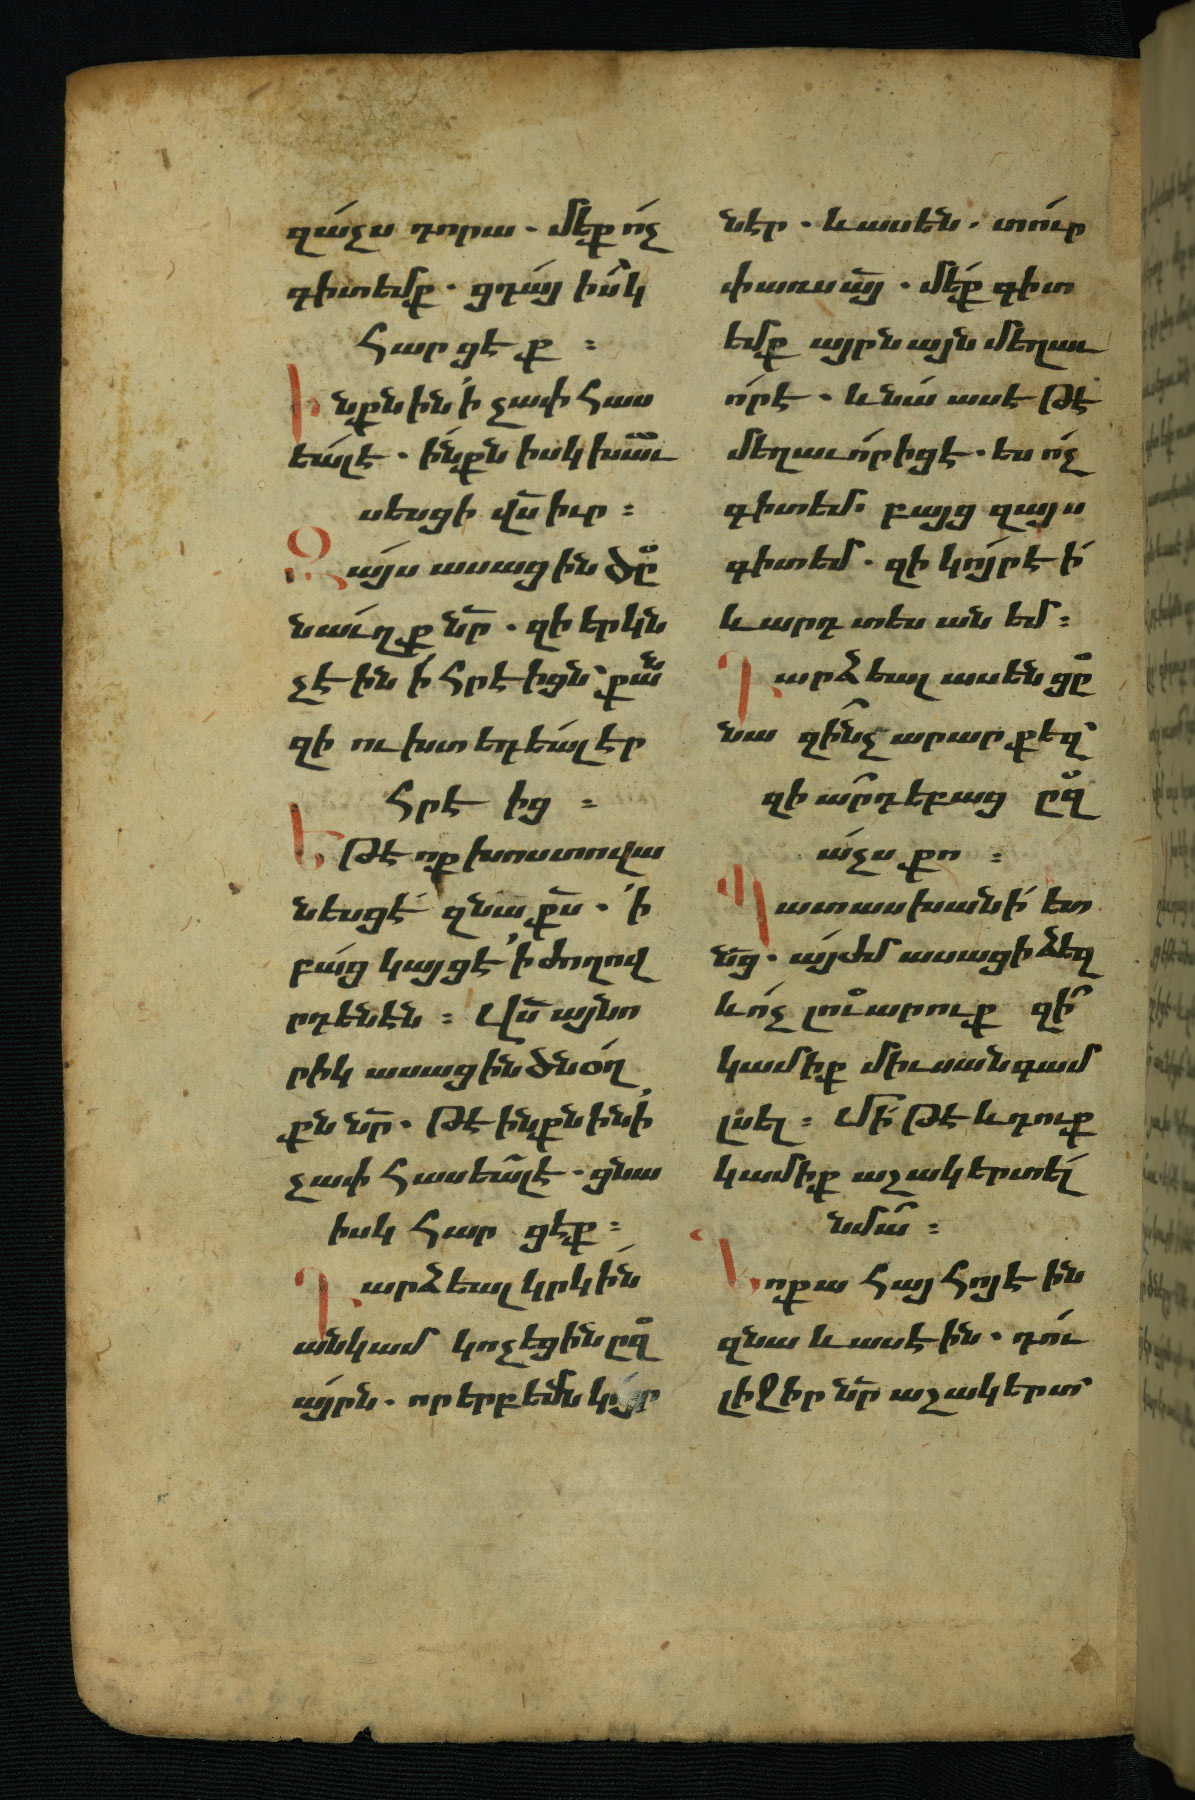 զաչս դորա. մեք ոչ
գիտեմք. ցդայ իսկ
հարցեք :
Ինքնին 'ի չափ հաս
եալ է. ինքն իսկ խաւ
սեսցի վս իւր :
Զայս ասացին ծը
նաւղք նր. զի երկն
չէին ի հրէիցն քան
զի ուխտ եդեալ էր
հրէ ից :
Եթէ ոք խոստովա
նեսցէ զնա քս. 'ի
բաց կայցէ 'ի ժողով
րդենէն : Վս այնո
րիկ ասացին ծնօղ
քն նր. թէ ինքնին 'ի
չափ հասեալ է. ցնա
իսկ հար ցէք :
Դարձեալ կրկին
անկամ կոչեցին ըզ
այրն. որ երբեմն կոյր
նէր. և ասեն. տուր
փառս այ. մեք գիտ
եմք այրն այն մեղաւ
որ է. և նա ասէ թէ
մեղաւոր իցէ. ես ոչ
գիտեմ. բայց զայս
գիտեմ. զի կոյր էի
և արդ տեսանեմ :
Դարձեալ ասեն ցը
նա զինչ արար քեզ
զիարդ եբաց ըզ
աչս քո :
Պատասխանի ետ
նց. այժմ ասացի ձեզ
և ոչ լուարուք զի
կամիք միւսանգամ
լսել : Մի թէ և դուք
կամիք աշակերտել
նմա :
Նոքա հայհոյէին
զնա և ասէին. դու
լիջիր նր աշակերտ